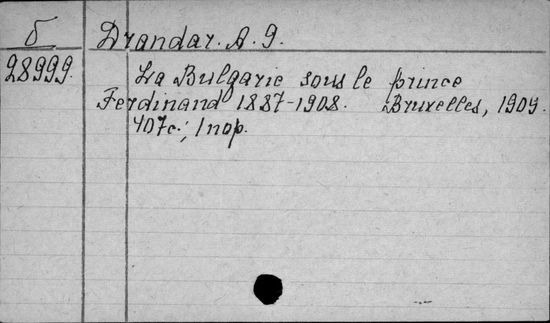 б Drandar. A. G.
28999. La Bulgarie sous le prince
Ferdinand 1887-1908. Bruxelles, 1909.
407с.; 1 пор.